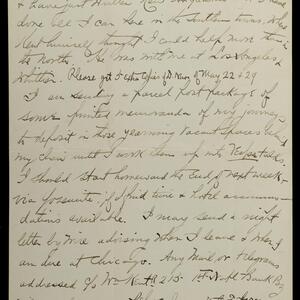 & have just written New
done all I can here in the Southern towns. Mr
Kent sincerely thought I could help more than in
the North. He was with me at Los Angeles &
Whittier. Please get 5 extra copies of D. News of May 22 & 29
I am sending a parcel post package of
some printed memoranda of my journey
to deposit in those yearning vacant spaces behind
my chair until I work them up into
I should start homeward the end of next week
via Yosemite if I find time & hotel accommo-
dations available. I may send a night
letter by wire advising when I leave & when I
am due at Chicago. Any mail or telegrams
addressed c/o Wm Kent 1st Natl Bank Bg